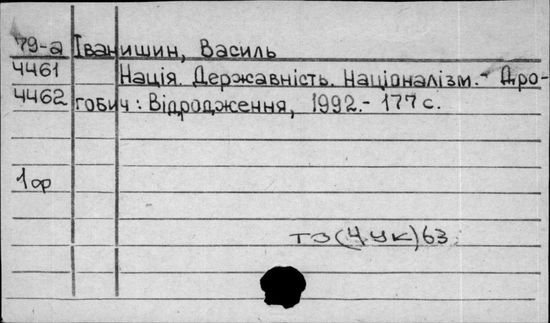 79-а Іванишин, Василь
4461 Нація. Державність. Націоналізм.- Дро-
4462 гобич: Відродження, 1992.- 177 с.
1 ор
ТЭ(4УК)63